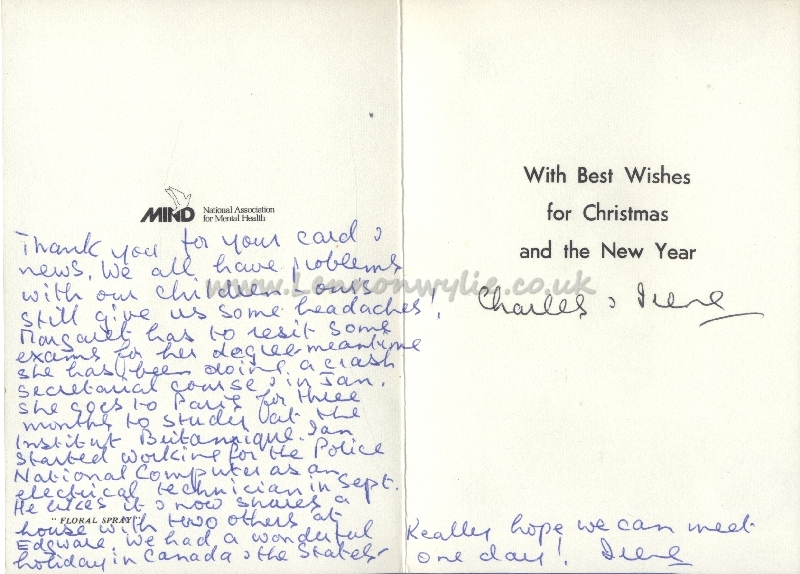 MIND National Association
for Mental Health
Thank you for your card &
news. We all have problems
with our children ours
still give us some headaches!
Margaret has to resit some
exams for her degree meantime
she has been doing a crash
secretarial course & in Jan.
she goes to Paris for three
months to study at the
Institut Britannique. Ian
started working for the Police
National Computer as an
electrical technician in Sept.
He likes it & now shares a
"FLORAL SPRAY"
house with two others at
Edgware. We had a wonderful
holiday in Canada & the States-
With Best Wishes
for Christmas
and the New Year
www.Lennonwylie.co.uk
Charles & Irene
Really hope we can meet
one day! Irene